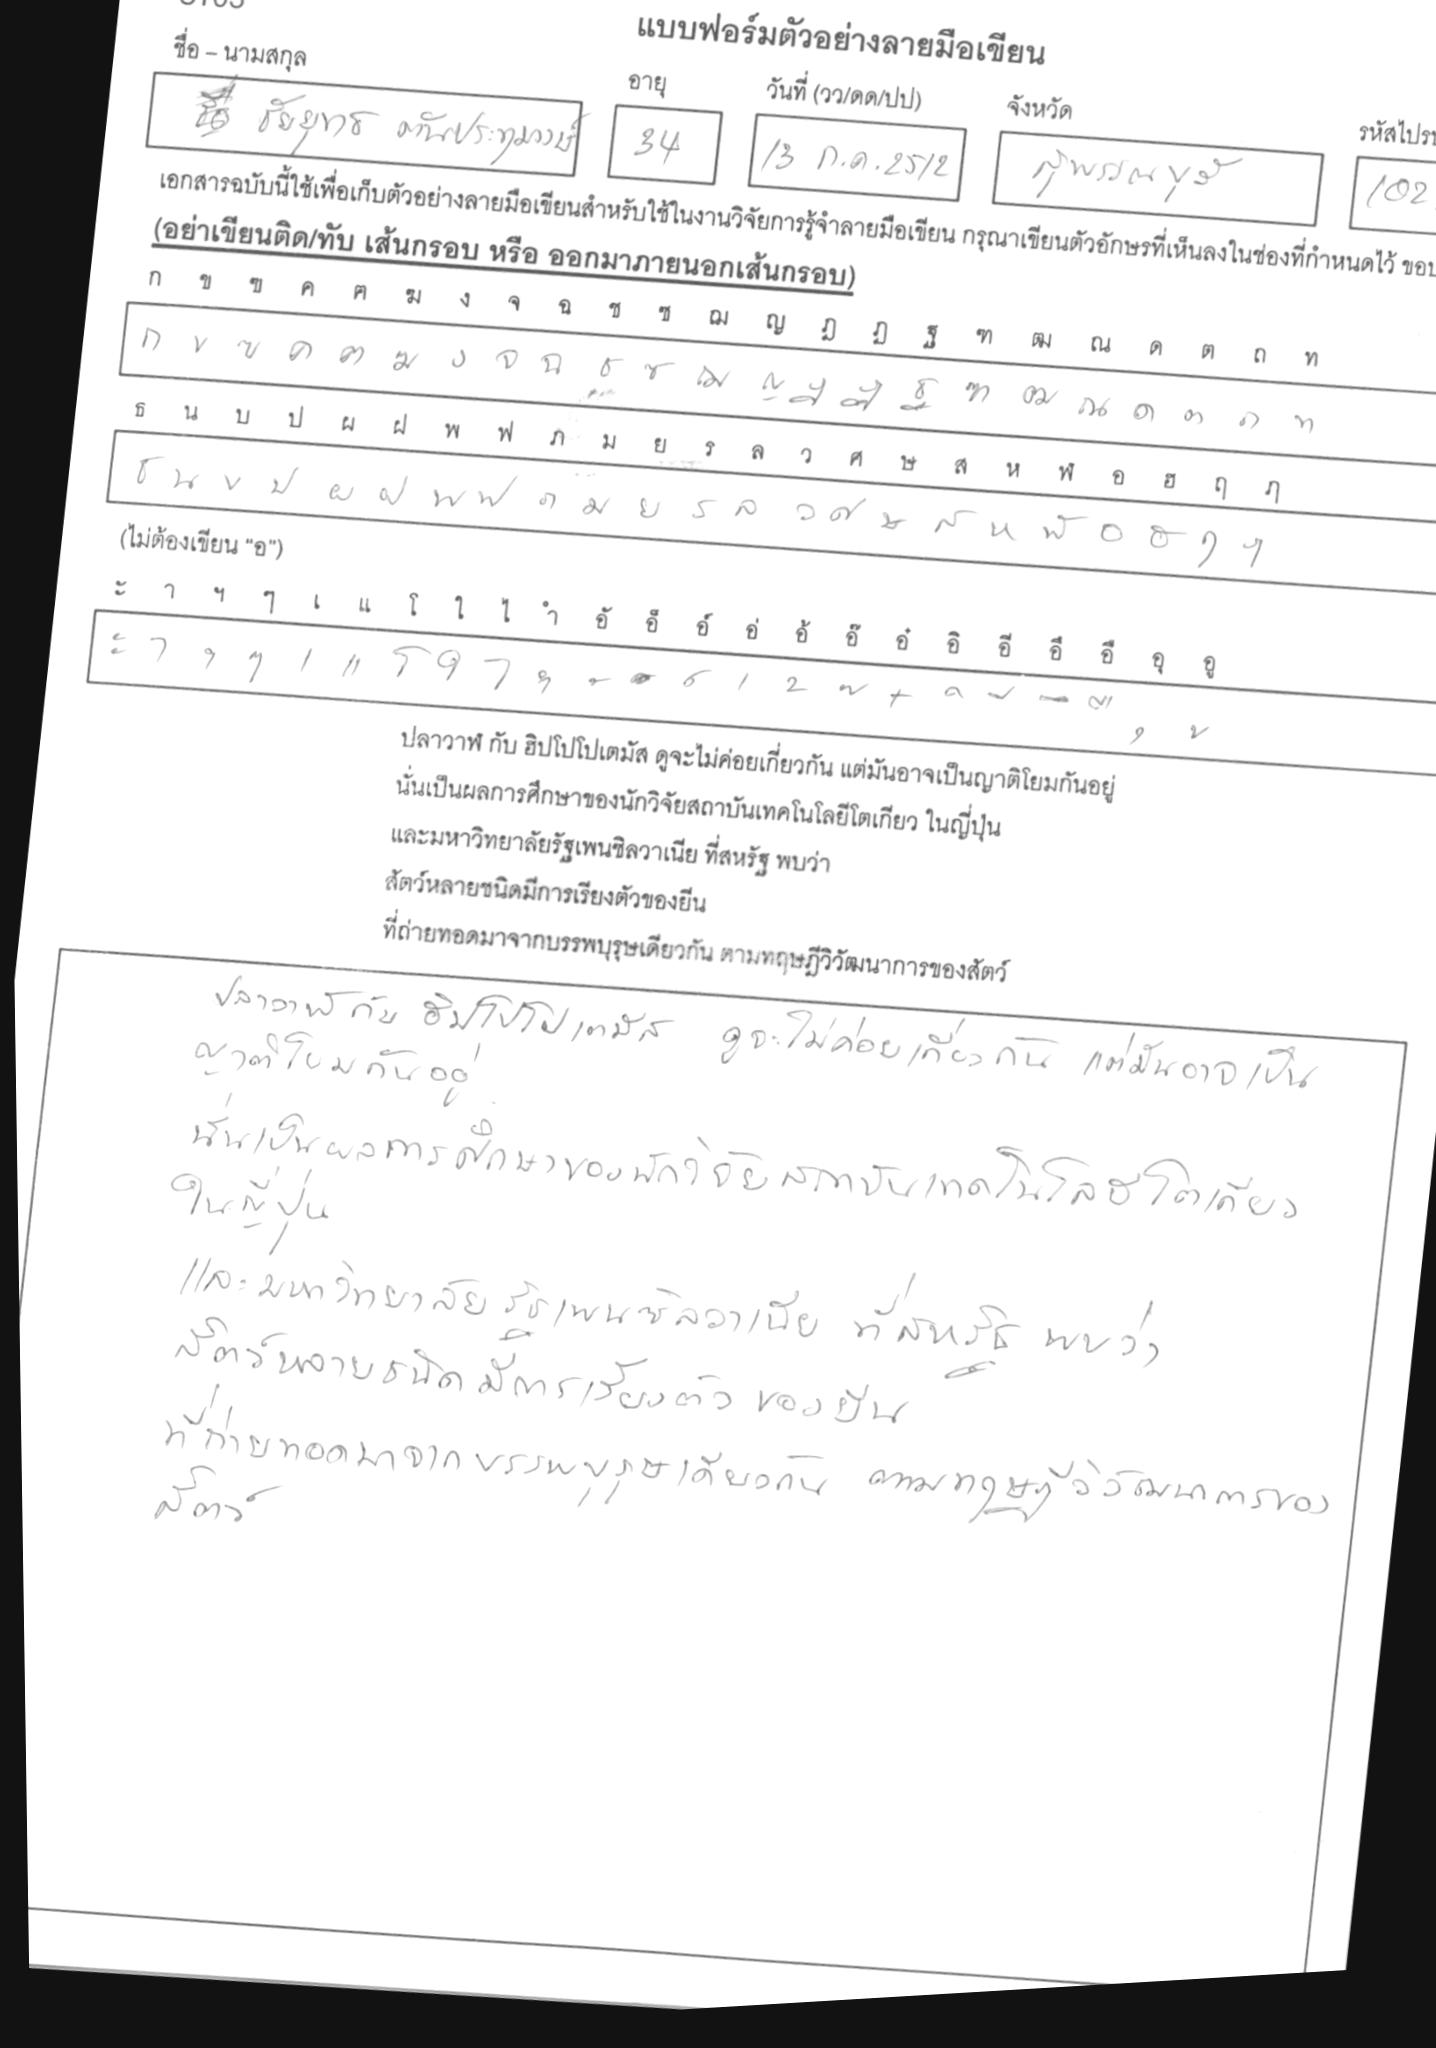 แบบฟอร์มตัวอย่างลายมือเขียน
ชื่อ – นามสกุล อายุ วันที่ (วว/ดด/ปป) จังหวัด
ชัยยุทธ 34 13 ก.ค.2512 สุพรรณบุรี
เอกสารฉบับนี้ใช้เพื่อเก็บตัวอย่างลายมือเขียนสำหรับใช้ในงานวิจัยการรู้จำลายมือเขียน กรุณาเขียนตัวอักษรที่เห็นลงในช่องที่กำหนดไว้
(อย่าเขียนติด/ทับ เส้นกรอบ หรือ ออกมาภายนอกเส้นกรอบ)
ก ข ฃ ค ฅ ฆ ง จ ฉ ช ซ ฌ ญ ฎ ฏ ฐ ฑ ฒ ณ ด ต ถ ท
ก ข ฃ ค ฅ ฆ ง จ ฉ ช ซ ฌ ญ ฎ ฏ ฐ ฑ ฒ ณ ด ต ถ ท
ธ น บ ป ผ ฝ พ ฟ ภ ม ย ร ล ว ศ ษ ส ห ฬ อ ฮ ฤ ฦ
ธ น บ ป ผ ฝ พ ฟ ภ ม ย ร ล ว ศ ษ ส ห ฬ อ ฮ ฤ ฦ
(ไม่ต้องเขียน "อ")
ะ า ฯ ๆ เ แ โ ใ ไ ำ อั อ็ อ์ อ่ อ้ อ๊ อ๋ อิ อี อึ อื อุ อู
ะ า ฯ ๆ เ แ โ ใ ไ
ปลาวาฬ กับ ฮิปโปโปเตมัส ดูจะไม่ค่อยเกี่ยวกัน แต่มันอาจเป็นญาติโยมกันอยู่
นั่นเป็นผลการศึกษาของนักวิจัยสถาบันเทคโนโลยีโตเกียว ในญี่ปุ่น
และมหาวิทยาลัยรัฐเพนซิลวาเนีย ที่สหรัฐ พบว่า
สัตว์หลายชนิดมีการเรียงตัวของยีน
ที่ถ่ายทอดมาจากบรรพบุรุษเดียวกัน ตามทฤษฎีวิวัฒนาการของสัตว์
ปลาวาฬ กับ ฮิปโปโปเตมัส ดูจะไม่ค่อยเกี่ยวกัน แต่มันอาจเป็น
ญาติโยมกันอยู่
นั่นเป็นผลการศึกษาของนักวิจัยสถาบันเทคโนโลยีโตเกียว
ในญี่ปุ่น
และมหาวิทยาลัยรัฐเพนซิลวาเนีย ที่สหรัฐ พบว่า
สัตว์หลายชนิดมีการเรียงตัวของยีน
ที่ถ่ายทอดมาจากบรรพบุรุษเดียวกัน ตามทฤษฎีวิวัฒนาการของ
สัตว์